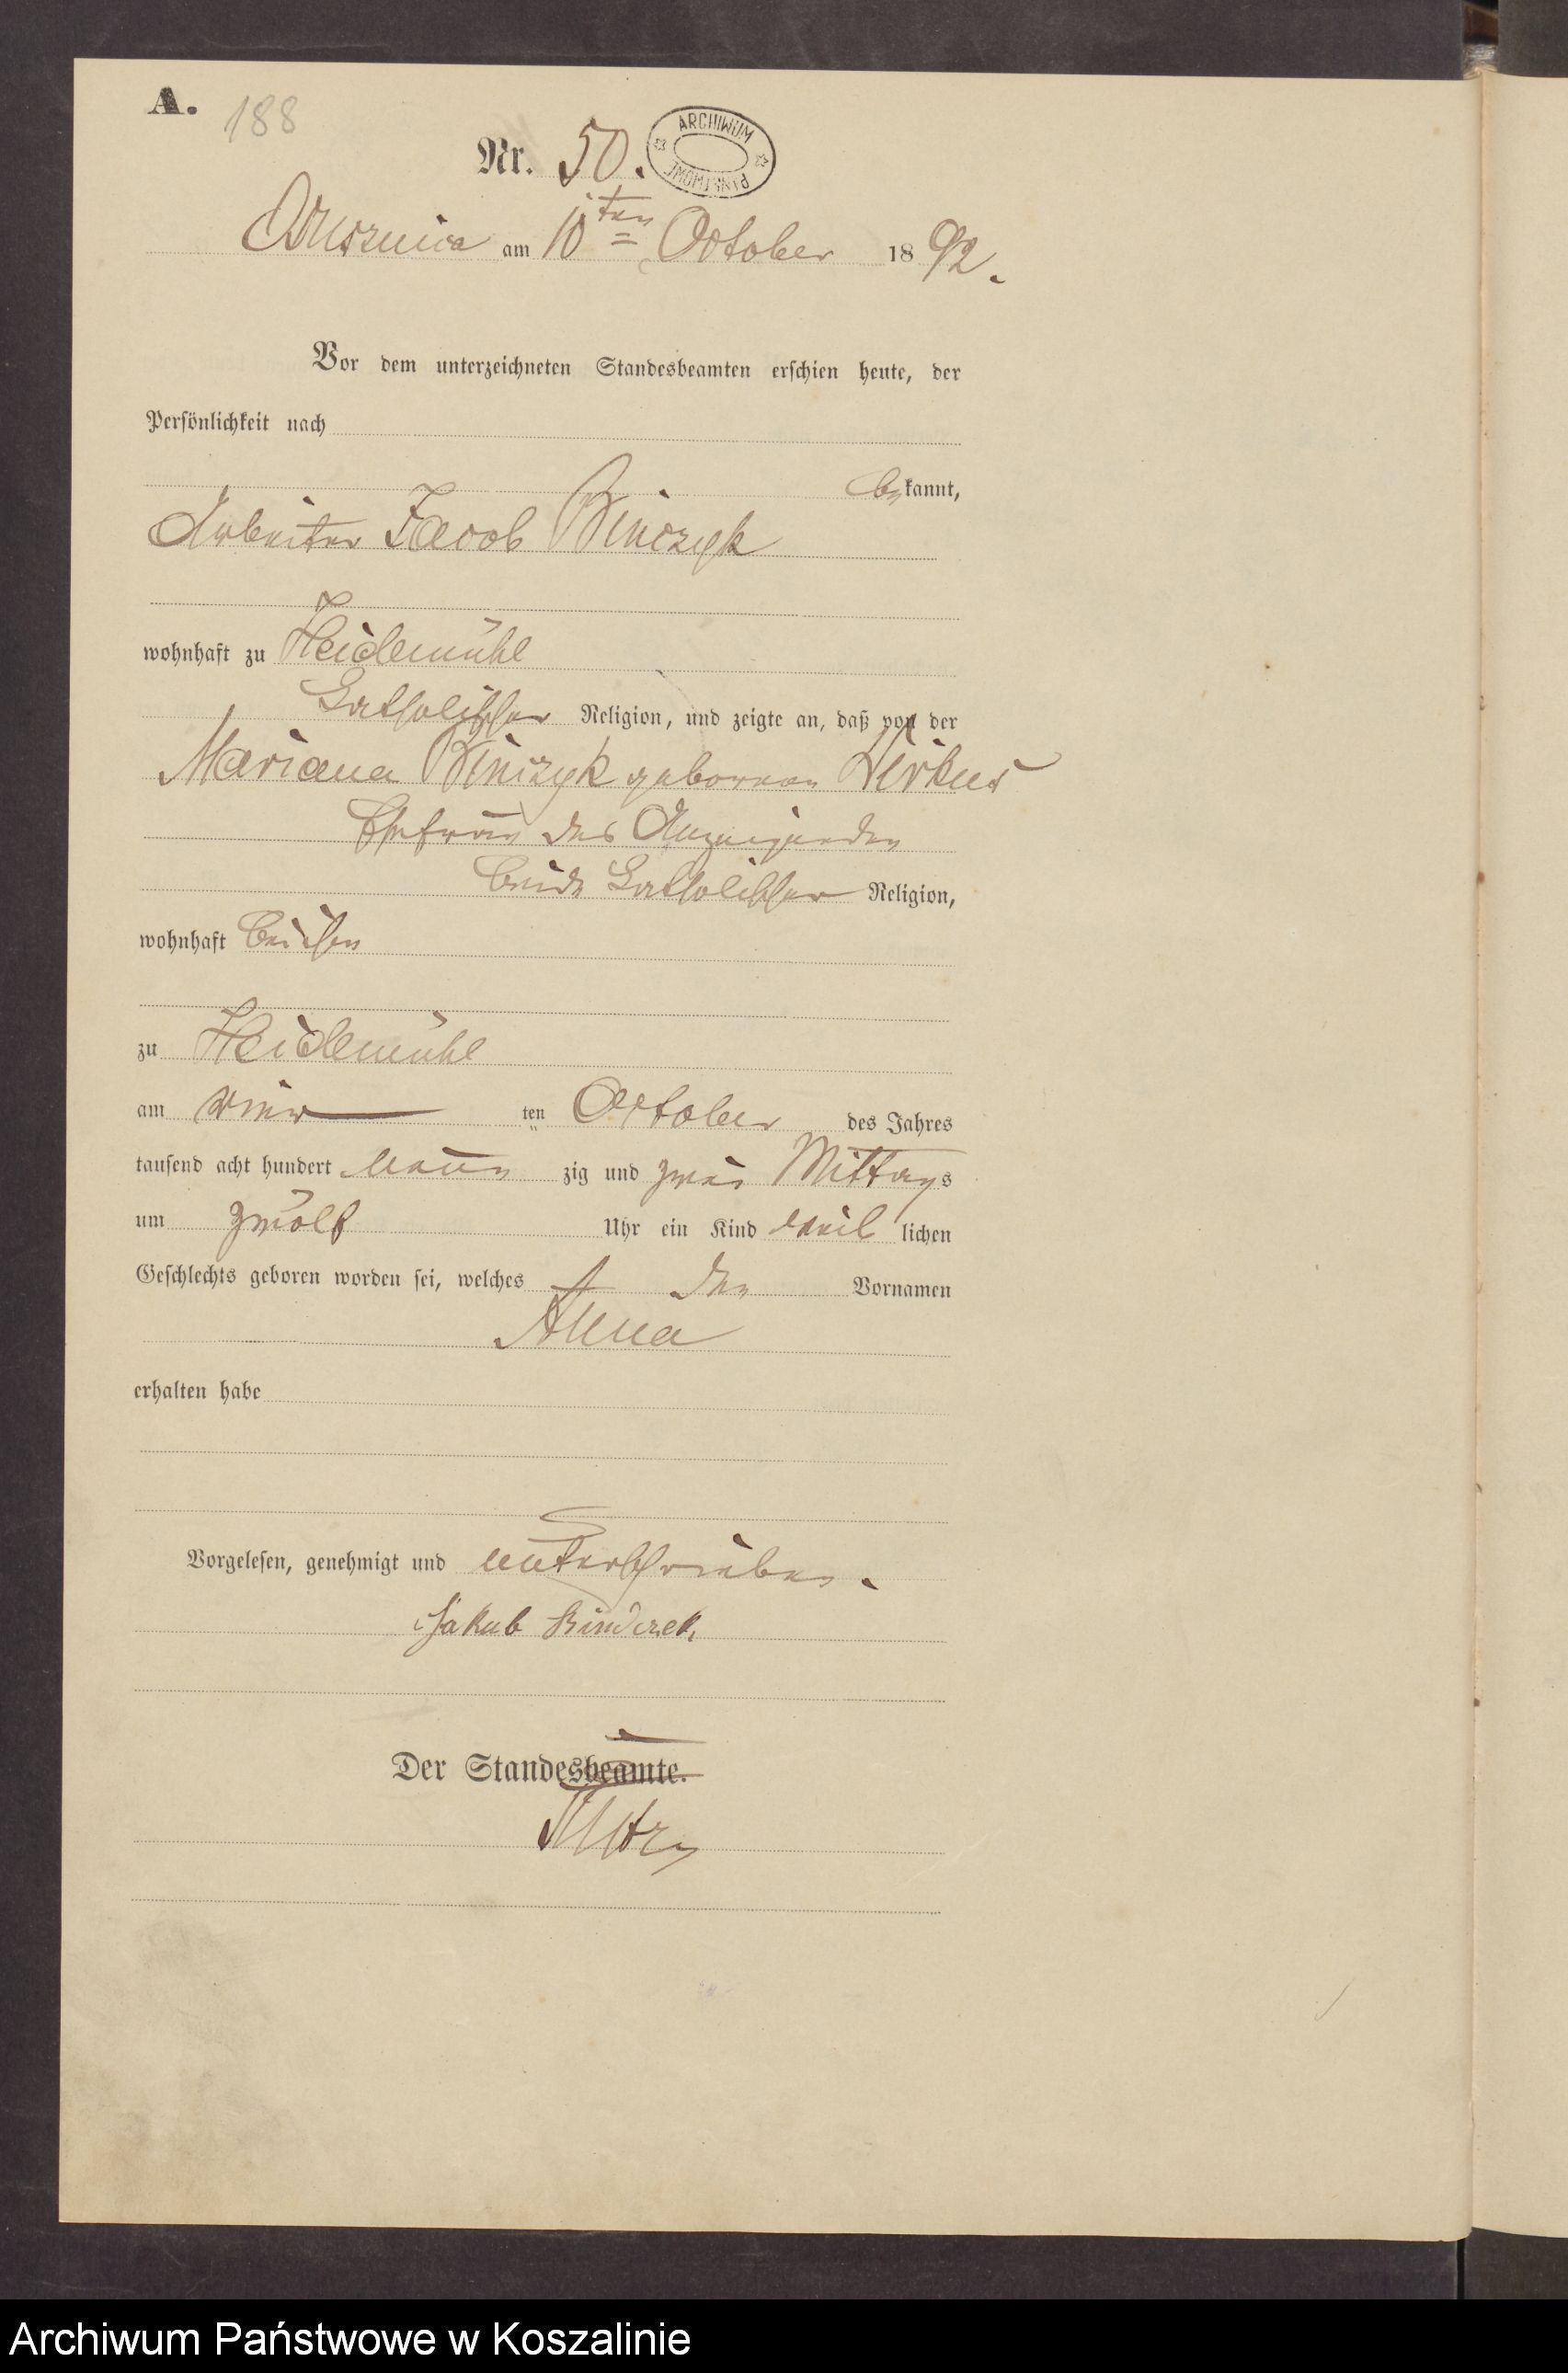 A. 188
Nr. 50.
ARCHIWUM PAŃSTWOWE
am 10ten October 1892.
Vor dem unterzeichneten Standesbeamten erschien heute, der
Persönlichkeit nach
bekannt,
Arbeiter Jacob Binczyk
wohnhaft zu Heidemühl
katholischer Religion, und zeigte an, daß von der
Mariana Binczyk geborenen Wirkus
Ehefrau des Anzeigenden
beide katholischer Religion,
wohnhaft bei ihm
zu Heidemühl
am vier ten October des Jahres
tausend acht hundert neun zig und zwei Mittags
um zwölf Uhr ein Kind weib lichen
Geschlechts geboren worden sei, welches den Vornamen
Anna
erhalten habe
Vorgelesen, genehmigt und unterschrieben.
Jakub
Der Standesbeamte.
Archiwum Państwowe w Koszalinie